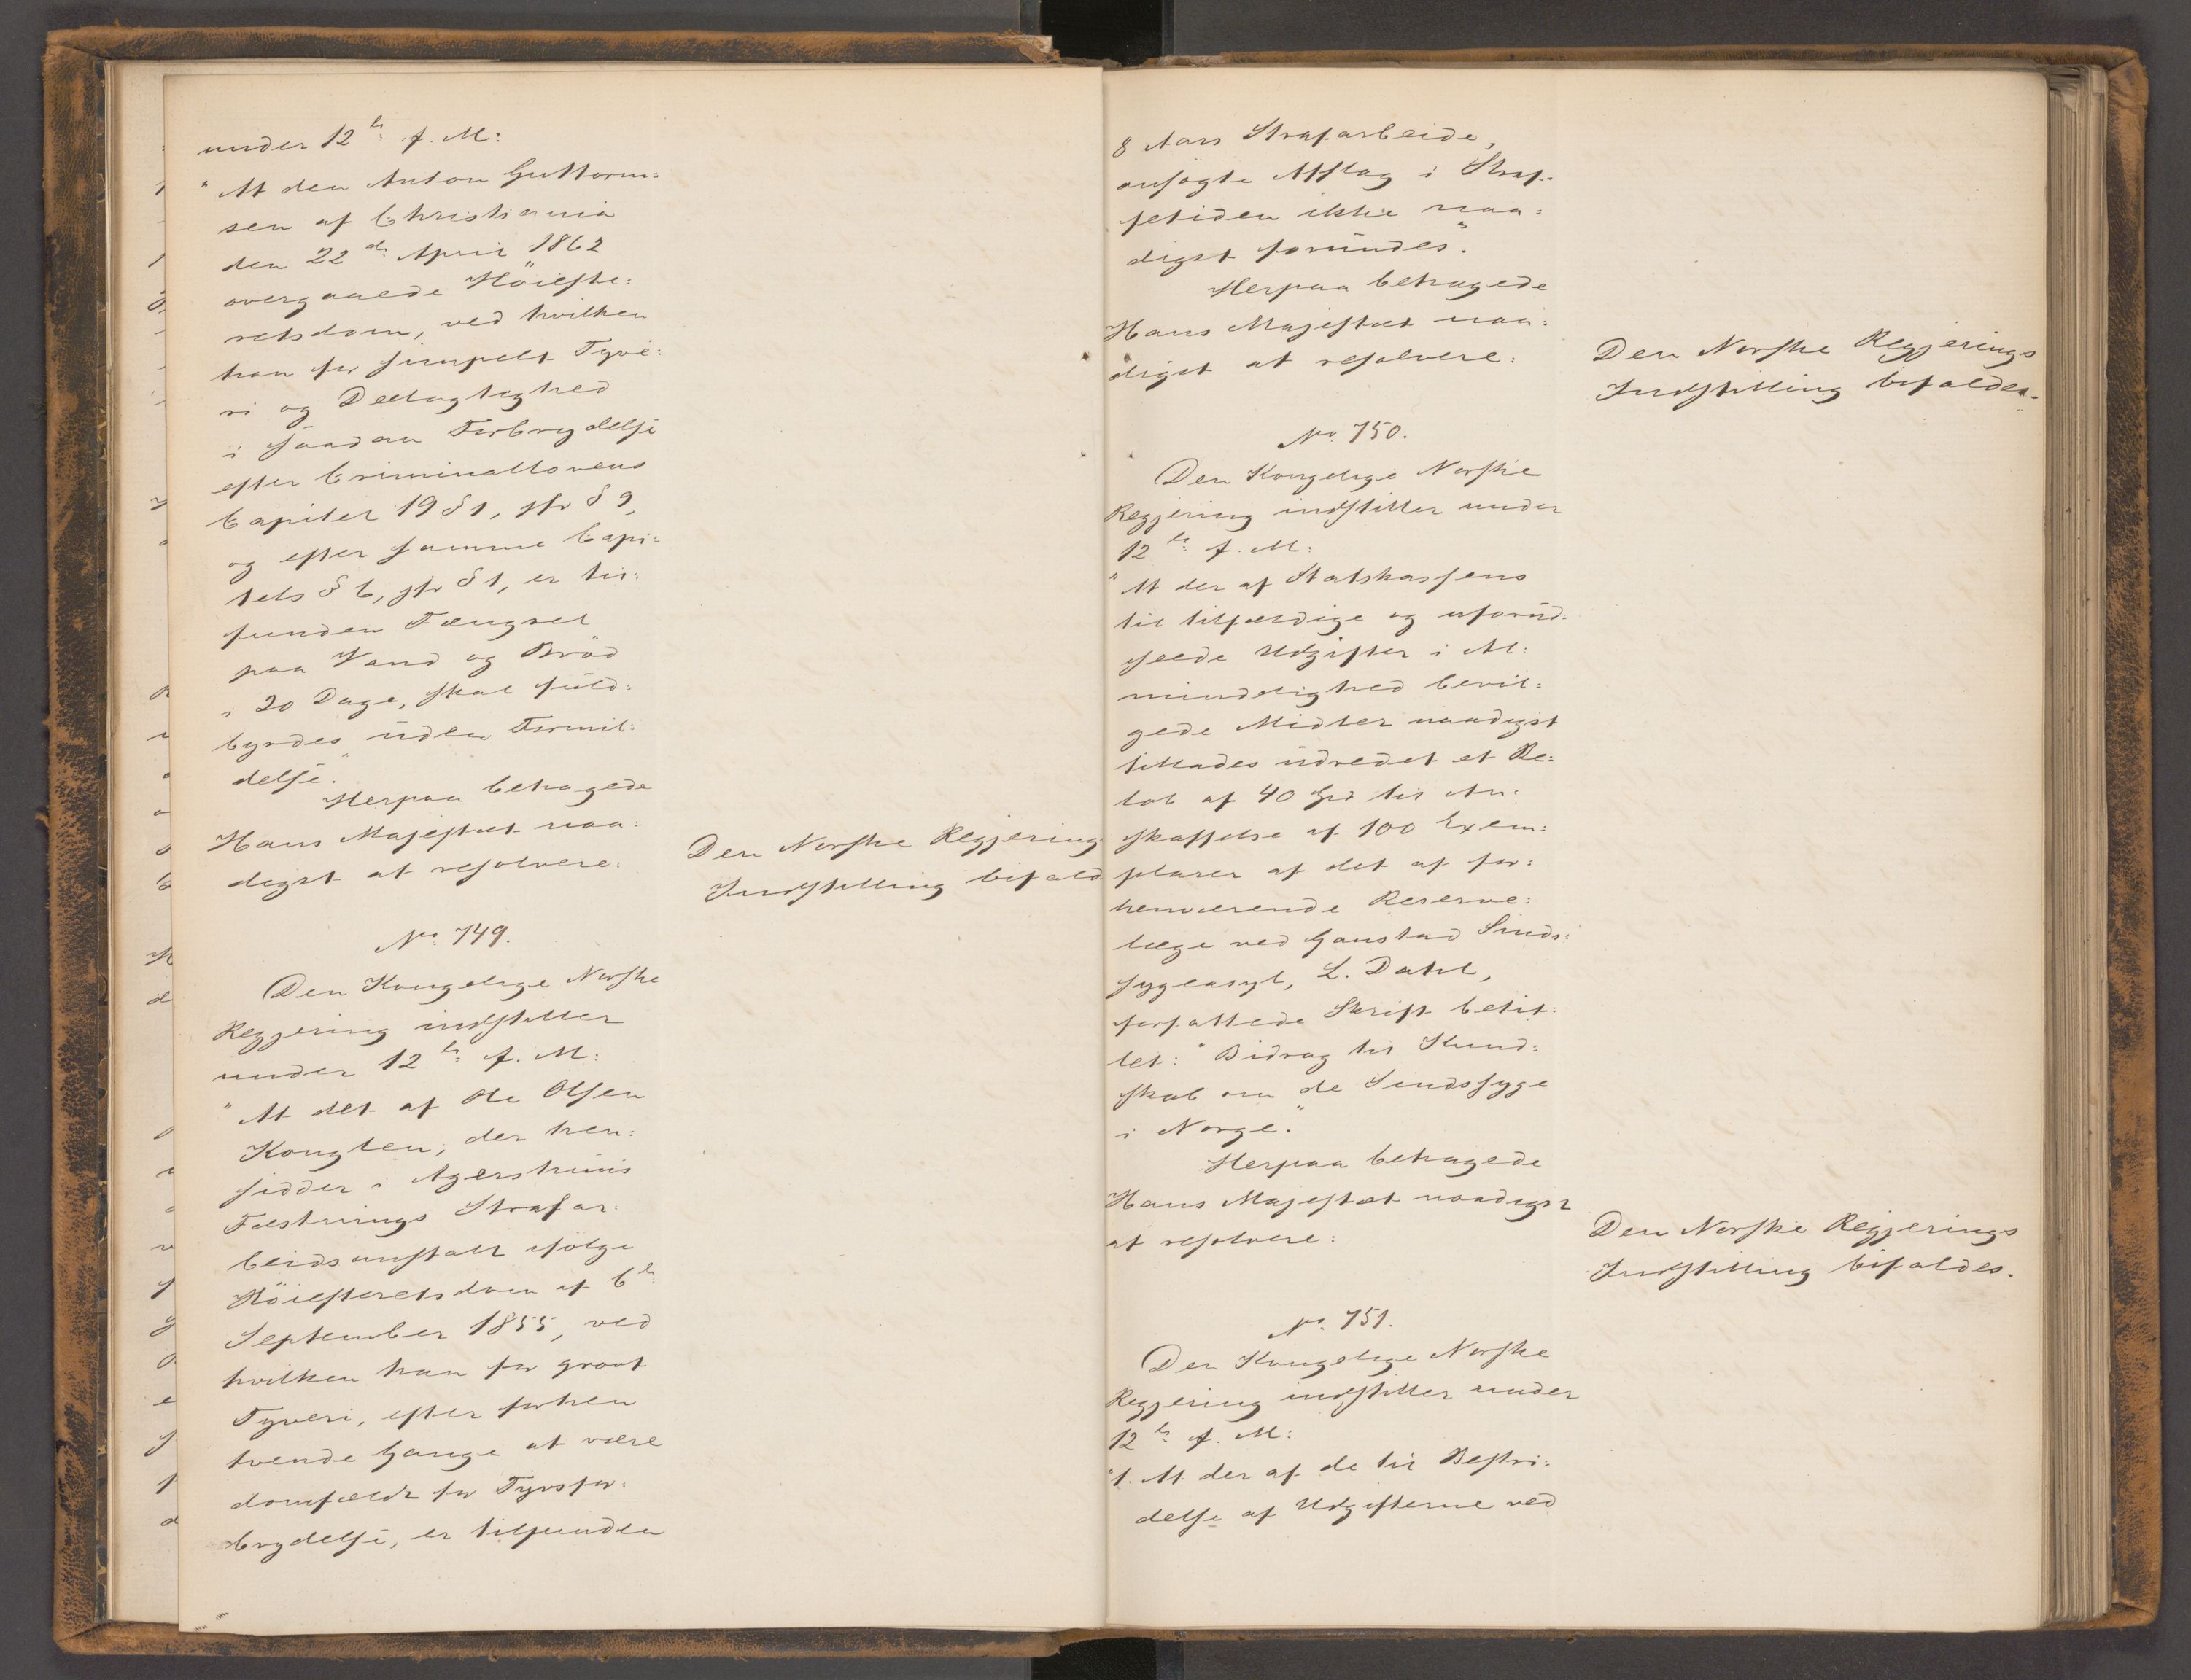 under 12te f. M:
"At den Anton Guttorm=
sen af Christiania
den 22de April 1862
overgaaede Höieste=
retsdom, ved hvilken
han for simpelt Tyve=
ri og Deelagtighed
i saadan Forbrydelse
efter Criminallovens
Capitel 19 § 1, jfr § 9,
og efter samme Capi=
tels § 6, jfr § 1, er til=
funden Fængsel
paa Vand og Bröd
i 20 Dage, skal fuld=
byrdes uden Formil=
delse."
Herpaa behagede
Hans Majestæt naa=
digst at resolvere:
Den Norske Regjering
Indstilling bifald
No. 749.
Den Kongelige Norske
Regjering indstiller
under 12te f. M:
"At det af Ole Olsen
Konglen, der hen=
sidder i Agershuus
Fæstnings Strafar=
beidsanstalt ifölge
Höiesteretsdom af 6te
September 1855, ved
hvilken han for grovt
Tyveri, efter forhen
tvende Gange at være
domfældt for Tyvsfor=
brydelse, er tilfunden
8 Aars Strafarbeide,
ansögte Afslag i Straf=
fetiden ikke naa=
digst forundes".
Herpaa behagede
Hans Majestæt naa=
digst at resolvere:
Den Norske Regjerings
Indstilling bifaldes.
No. 750.
Den Kongelige Norske
Regjering indstiller under
12te f. M:
"At der af Statskassens
til tilfældige og uforud=
seede Udgifter i Al=
mindelighed bevil=
gede Midler naadigst
tillades udredet et Be=
löb af 40 Spd til An=
skaffelse af 100 Exem=
plarer af det af for=
henværende Reserve=
læge ved Gaustad Sinds=
sygeasyl, L. Dahl,
forfattede Skrift betit=
let: "Bidrag til Kund=
skab om de Sindssyge
i Norge."
Herpaa behagede
Hans Majestæt naadigst
at resolvere:
Den Norske Regjerings
Indstilling bifaldes.
No. 751.
Den Kongelige Norske
Regjering indstiller under
12te f. M:
"1. At der af de til Bestri=
delse af Udgifterne ved